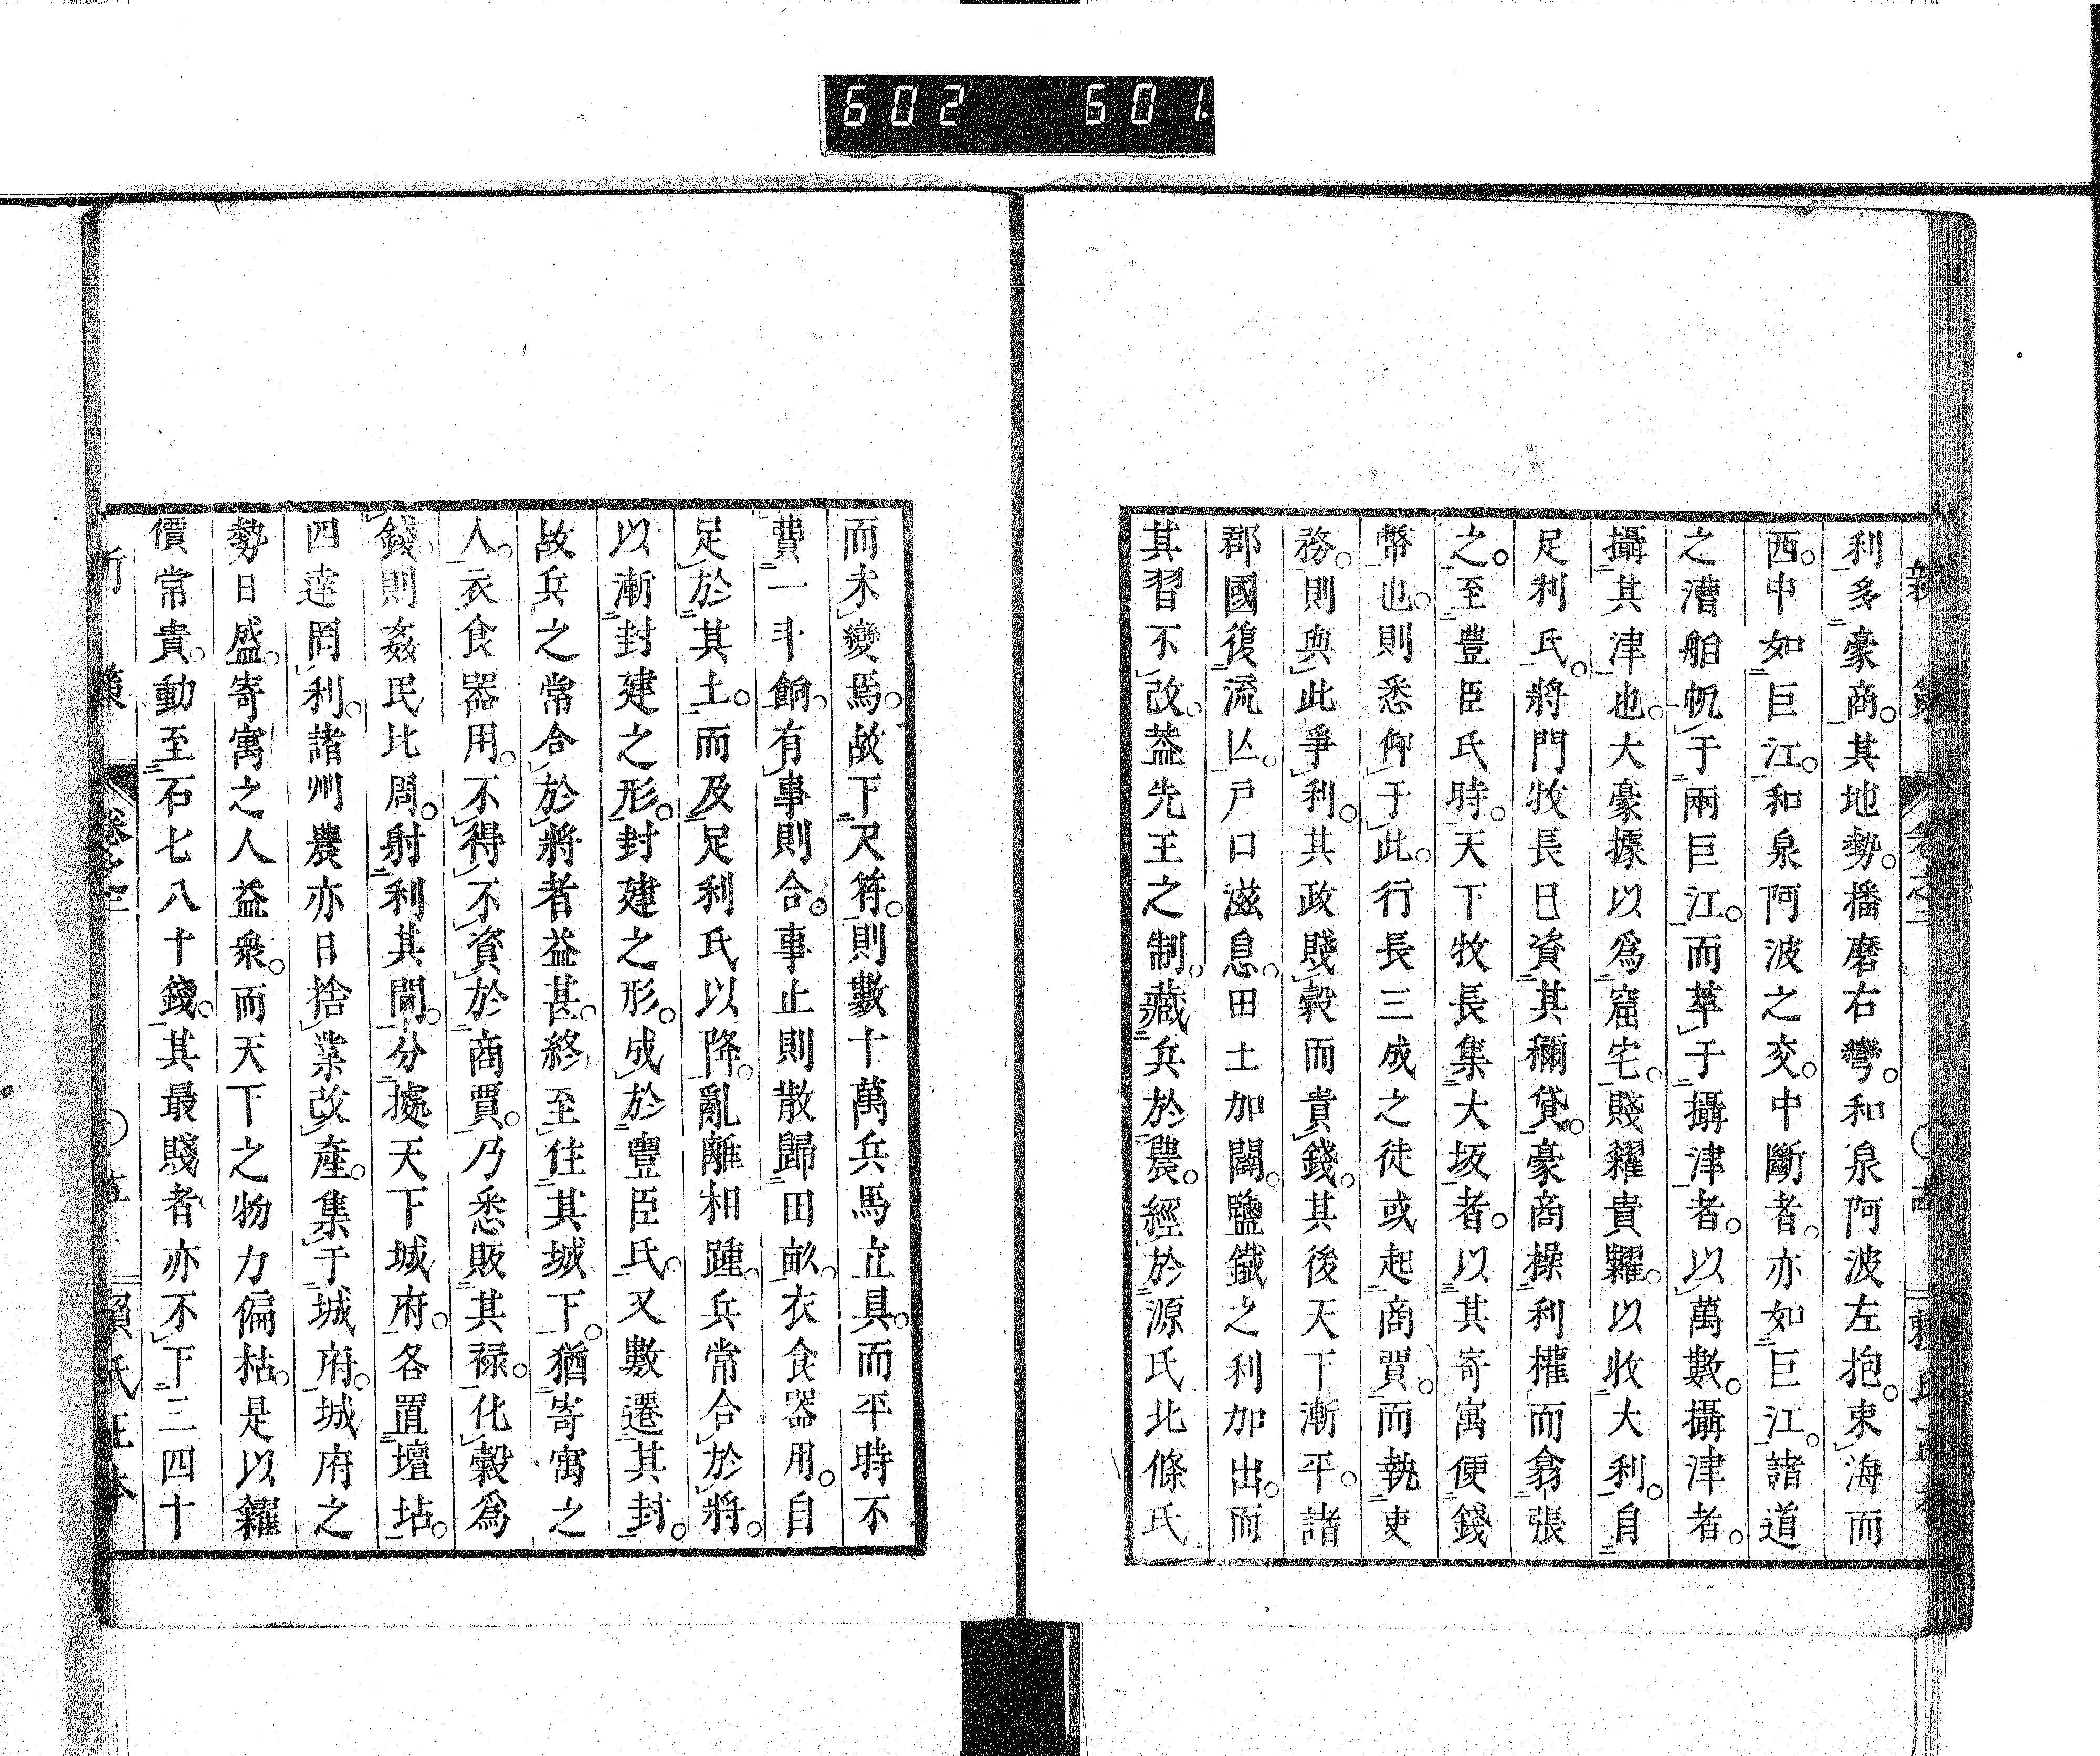 602 601
利多豪商。其地勢。播磨右彎。和泉阿波左抱。東海而
西。中如巨江。和泉阿波之交。中斷者。亦如巨江。諸道
之漕舶帆于兩巨江。而萃于攝津者。以萬數。攝津者。
攝其津也。大豪據以爲窟宅。賤糴貴糶。以收大利。自
足利氏。將門牧長日資其稱貸。豪商操利權而翕張
之。至豐臣氏時。天下牧長集大坂者。以其寄寓便錢
幣也。則悉仰于此。行長三成之徒或起商賈。而執吏
務。則與此爭利。其政賤穀而貴錢。其後天下漸平。諸
郡國復流亾。戸口滋息。田土加闢。鹽鐵之利加出。而
其習不改。葢先王之制。藏兵於農。經於源氏北條氏
而未變焉。故下尺符。則數十萬兵馬立具。而平時不
費一斗餉。有事則合。事止則散歸田畝。衣食器用。自
足於其土。而及足利氏以降。亂離相踵。兵常合於將。
以漸封建之形。封建之形。成於豐臣氏。又數遷其封。
故兵之常合於將者益甚。終至住其城下。猶寄寓之
人。衣食器用。不得不資於商賈。乃悉販其祿。化穀爲
錢。則姦民比周。射利其間。分據天下城府。各置壇坫。
四達罔利。諸州農亦日捨業改產。集于城府。城府之
勢日盛。寄寓之人益衆。而天下之物力偏枯。是以糴
價常貴。動至石七八十錢。其最賤者亦不下三四十